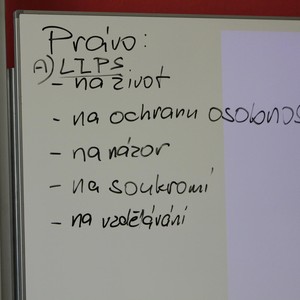 Právo:
A) LZPS
- na život
- na ochranu osobnos
- na názor
- na soukromí
- na vzdělávání